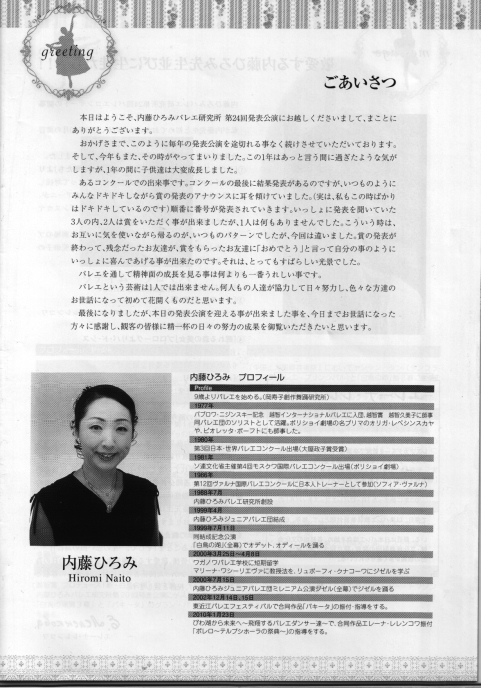 greeting
ごあいさつ
本日はようこそ、内藤ひろみバレエ研究所 第24回発表公演にお越しくださいまして、まことに
ありがとうございます。
おかげさまで、このように毎年の発表公演を途切れる事なく続けさせていただいております。
そして、今年もまた、その時がやってまいりました。この1年はあっと言う間に過ぎたような気が
しますが、1年の間に子供達は大変成長しました。
あるコンクールでの出来事です。コンクールの最後に結果発表があるのですが、いつものように
みんなドキドキしながら賞の発表のアナウンスに耳を傾けていました。(実は、私もこの時ばかり
はドキドキしているのです) 順番に番号が発表されていきます。いっしょに発表を聞いていた
3人の内、2人は賞をいただく事が出来ましたが、1人は何もありませんでした。こういう時は、
お互いに気を使いながら帰るのが、いつものパターンでしたが、今回は違いました。賞の発表が
終わって、残念だったお友達が、賞をもらったお友達に「おめでとう」と言って自分の事のように
いっしょに喜んであげる事が出来たのです。それは、とってもすばらしい光景でした。
バレエを通して精神面の成長を見る事は何よりも一番うれしい事です。
バレエという芸術は1人では出来ません。何人もの人達が協力して日々努力し、色々な方達の
お世話になって初めて花開くものだと思います。
最後になりましたが、本日の発表公演を迎える事が出来ました事を、今日までお世話になった
方々に感謝し、観客の皆様に精一杯の日々の努力の成果を御覧いただきたいと思います。
内藤ひろみ プロフィール
Profile
9歳よりバレエを始める。(岡寿子創作舞踊研究所)
1977年
パブロワ・ニジンスキー記念 越智インターナショナルバレエに入団、越智實 越智久美子に師事
同バレエ団のソリストとして活躍。ボリショイ劇場の名プリマのオリガ・レペシンスカヤ
や、ビオレッタ・ボーフトにも師事した。
1980年
第3回日本・世界バレエコンクール出場(大阪政子賞受賞)
1981年
ソ連文化省主催第4回モスクワ国際バレエコンクール出場(ボリショイ劇場)
1986年
第12回ヴァルナ国際バレエコンクールに日本人トレーナーとして参加(ソフィア・ヴァルナ)
1988年7月
内藤ひろみバレエ研究所創設
1999年4月
内藤ひろみジュニアバレエ団結成
1999年7月11日
同結成記念公演
「白鳥の湖」(全幕)でオデット、オディールを踊る
2000年3月25日〜4月8日
ワガノワバレエ学校に短期留学
マリーナ・ワシーリエヴァに教授法を、リュボーフィ・クナコーワにジゼルを学ぶ
2000年7月15日
内藤ひろみジュニアバレエ団ミレニアム公演ジゼル(全幕)でジゼルを踊る
2002年12月14日、15日
東近江バレエフェスティバルで合同作品「パキータ」の振付・指導をする。
2010年1月23日
びわ湖から未来へ〜飛翔するバレエダンサー達〜で、合同作品エレーナ・レレンコワ振付
「ボレロ〜テルプシホーラの祭典〜」の指導をする。
内藤ひろみ
Hiromi Naito